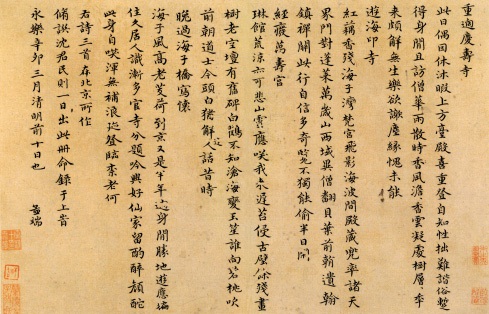 重過慶壽寺
此日偶因休沐暇上方臺殿喜重登自知性拙難諧俗暫
得身閒且訪僧華雨散時香風澹香雲凝處樹層幸
來頗解無生樂欲謝塵緣愧未能
遊海印寺
紅藕香殘海子灣梵宮飛影海波間殿藏兜率諸天
界門對蓬萊萬歲山西域異僧翻貝葉前朝遺翰
鎮禪關此行自信多奇覽不獨能偷半日閒
經廢萬壽宮
琳館荒涼亦可悲山靈應笑我來遲苔侵古壁餘殘畫
樹老空壇有舊碑白鶴不知滄海變玉笙誰向碧桃吹
前朝道士今頭白猶解逢人話昔時
晚過海子橋寫懷
海子風高老芰荷到京又是半年過身閒勝地遊應遍
住久居人識漸多官寺分題吟興好仙家留酌醉顏酡
此身自笑渾無補浪跡登臨奈老何
右詩三首在北京所作
沈君民則一日出此冊命錄于上者
永樂辛卯三月清明前十日也 孟端